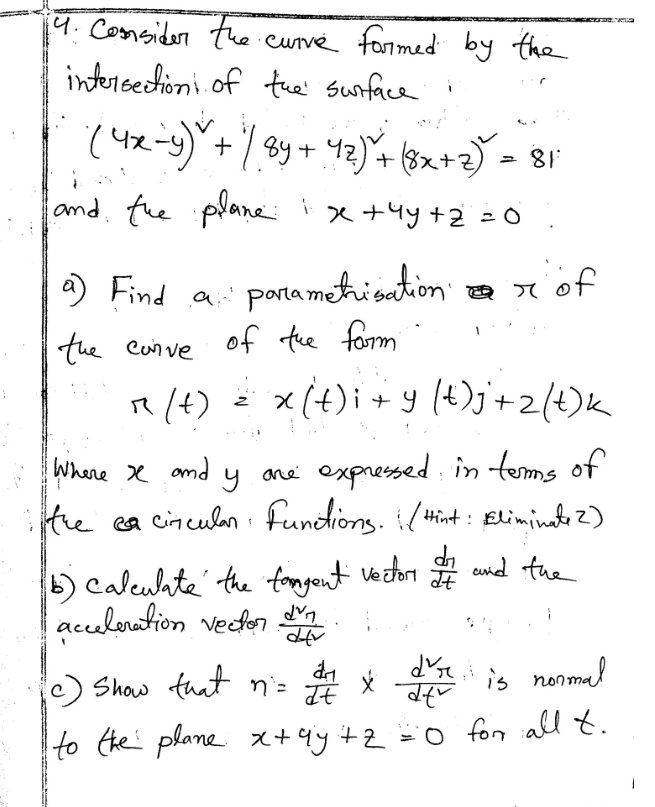 4. Consider the curve formed by the
intersection of the surface
(4x-y)² + (8y + 4z)² + (8x+z)² = 81
and the plane x + 4y + z = 0
a) Find a parametrisation r of
the curve of the form
r(t) = x(t)i + y(t)j + z(t)k
Where x and y are expressed in terms of
the circular functions. (Hint: Eliminate z)
b) Calculate the tangent vector dr/dt and the
acceleration vector d²r/dt²
c) Show that n = dr/dt × d²r/dt² is normal
to the plane x+4y+z = 0 for all t.